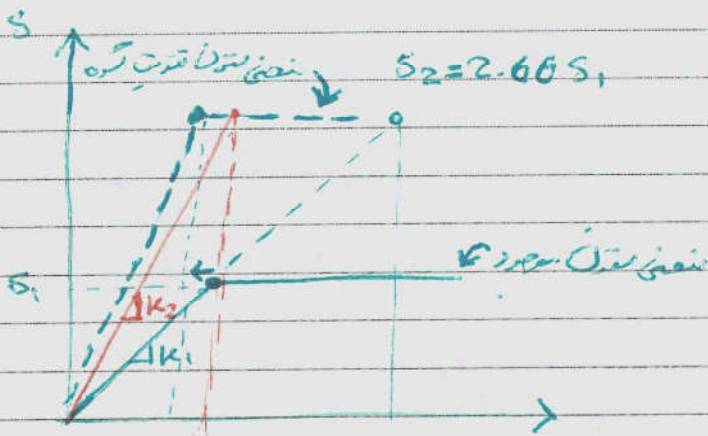 S
منحنی ستون تقویت شده
S₂=2.66 S₁
S₁
منحنی ستون موجود
ΔK₂
ΔK₁